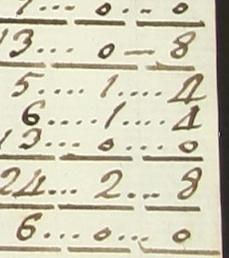 7... 0... 0
13... 0 — 8
5.... 1.... 4
6.... 1.... 4
13... 0... 0
24... 2... 8
6... 0... 0